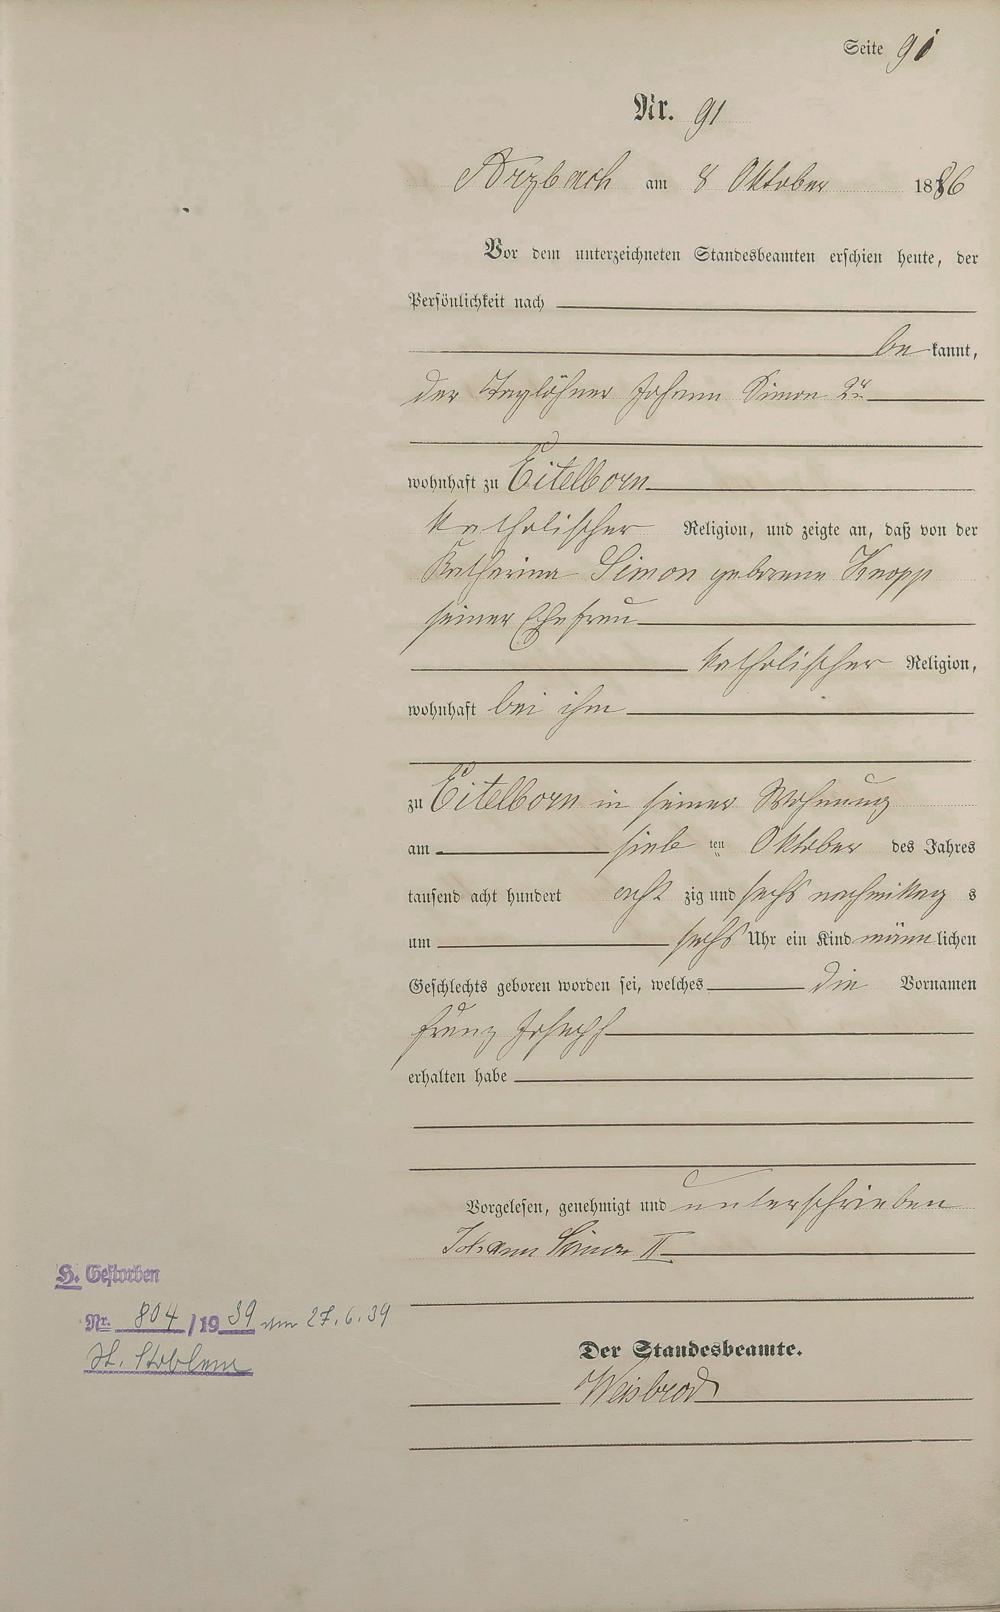 Seite 91
Nr. 91
Arzbach am 8 Oktober 1886
Vor dem unterzeichneten Standesbeamten erschien heute, der
Persönlichkeit nach
be kannt,
der Taglöhner Johann Simon 2r
wohnhaft zu Eitelborn
katholischer Religion, und zeigte an, daß von der
Katharina Simon geborene Knopp
seiner Ehefrau
katholischer Religion,
wohnhaft bei ihm
zu Eitelborn in seiner Wohnung
am sieb ten Oktober des Jahres
tausend acht hundert acht zig und sechs nachmittag s
um sechs Uhr ein Kind männ lichen
Geschlechts geboren worden sei, welches die Vornamen
Franz Joseph
erhalten habe
Vorgelesen, genehmigt und unterschrieben
Johann Simon II
H. Gestorben
Nr. 804 /19 39 am 27.6.39
St. Koblenz
Der Standesbeamte.
Weisbrod